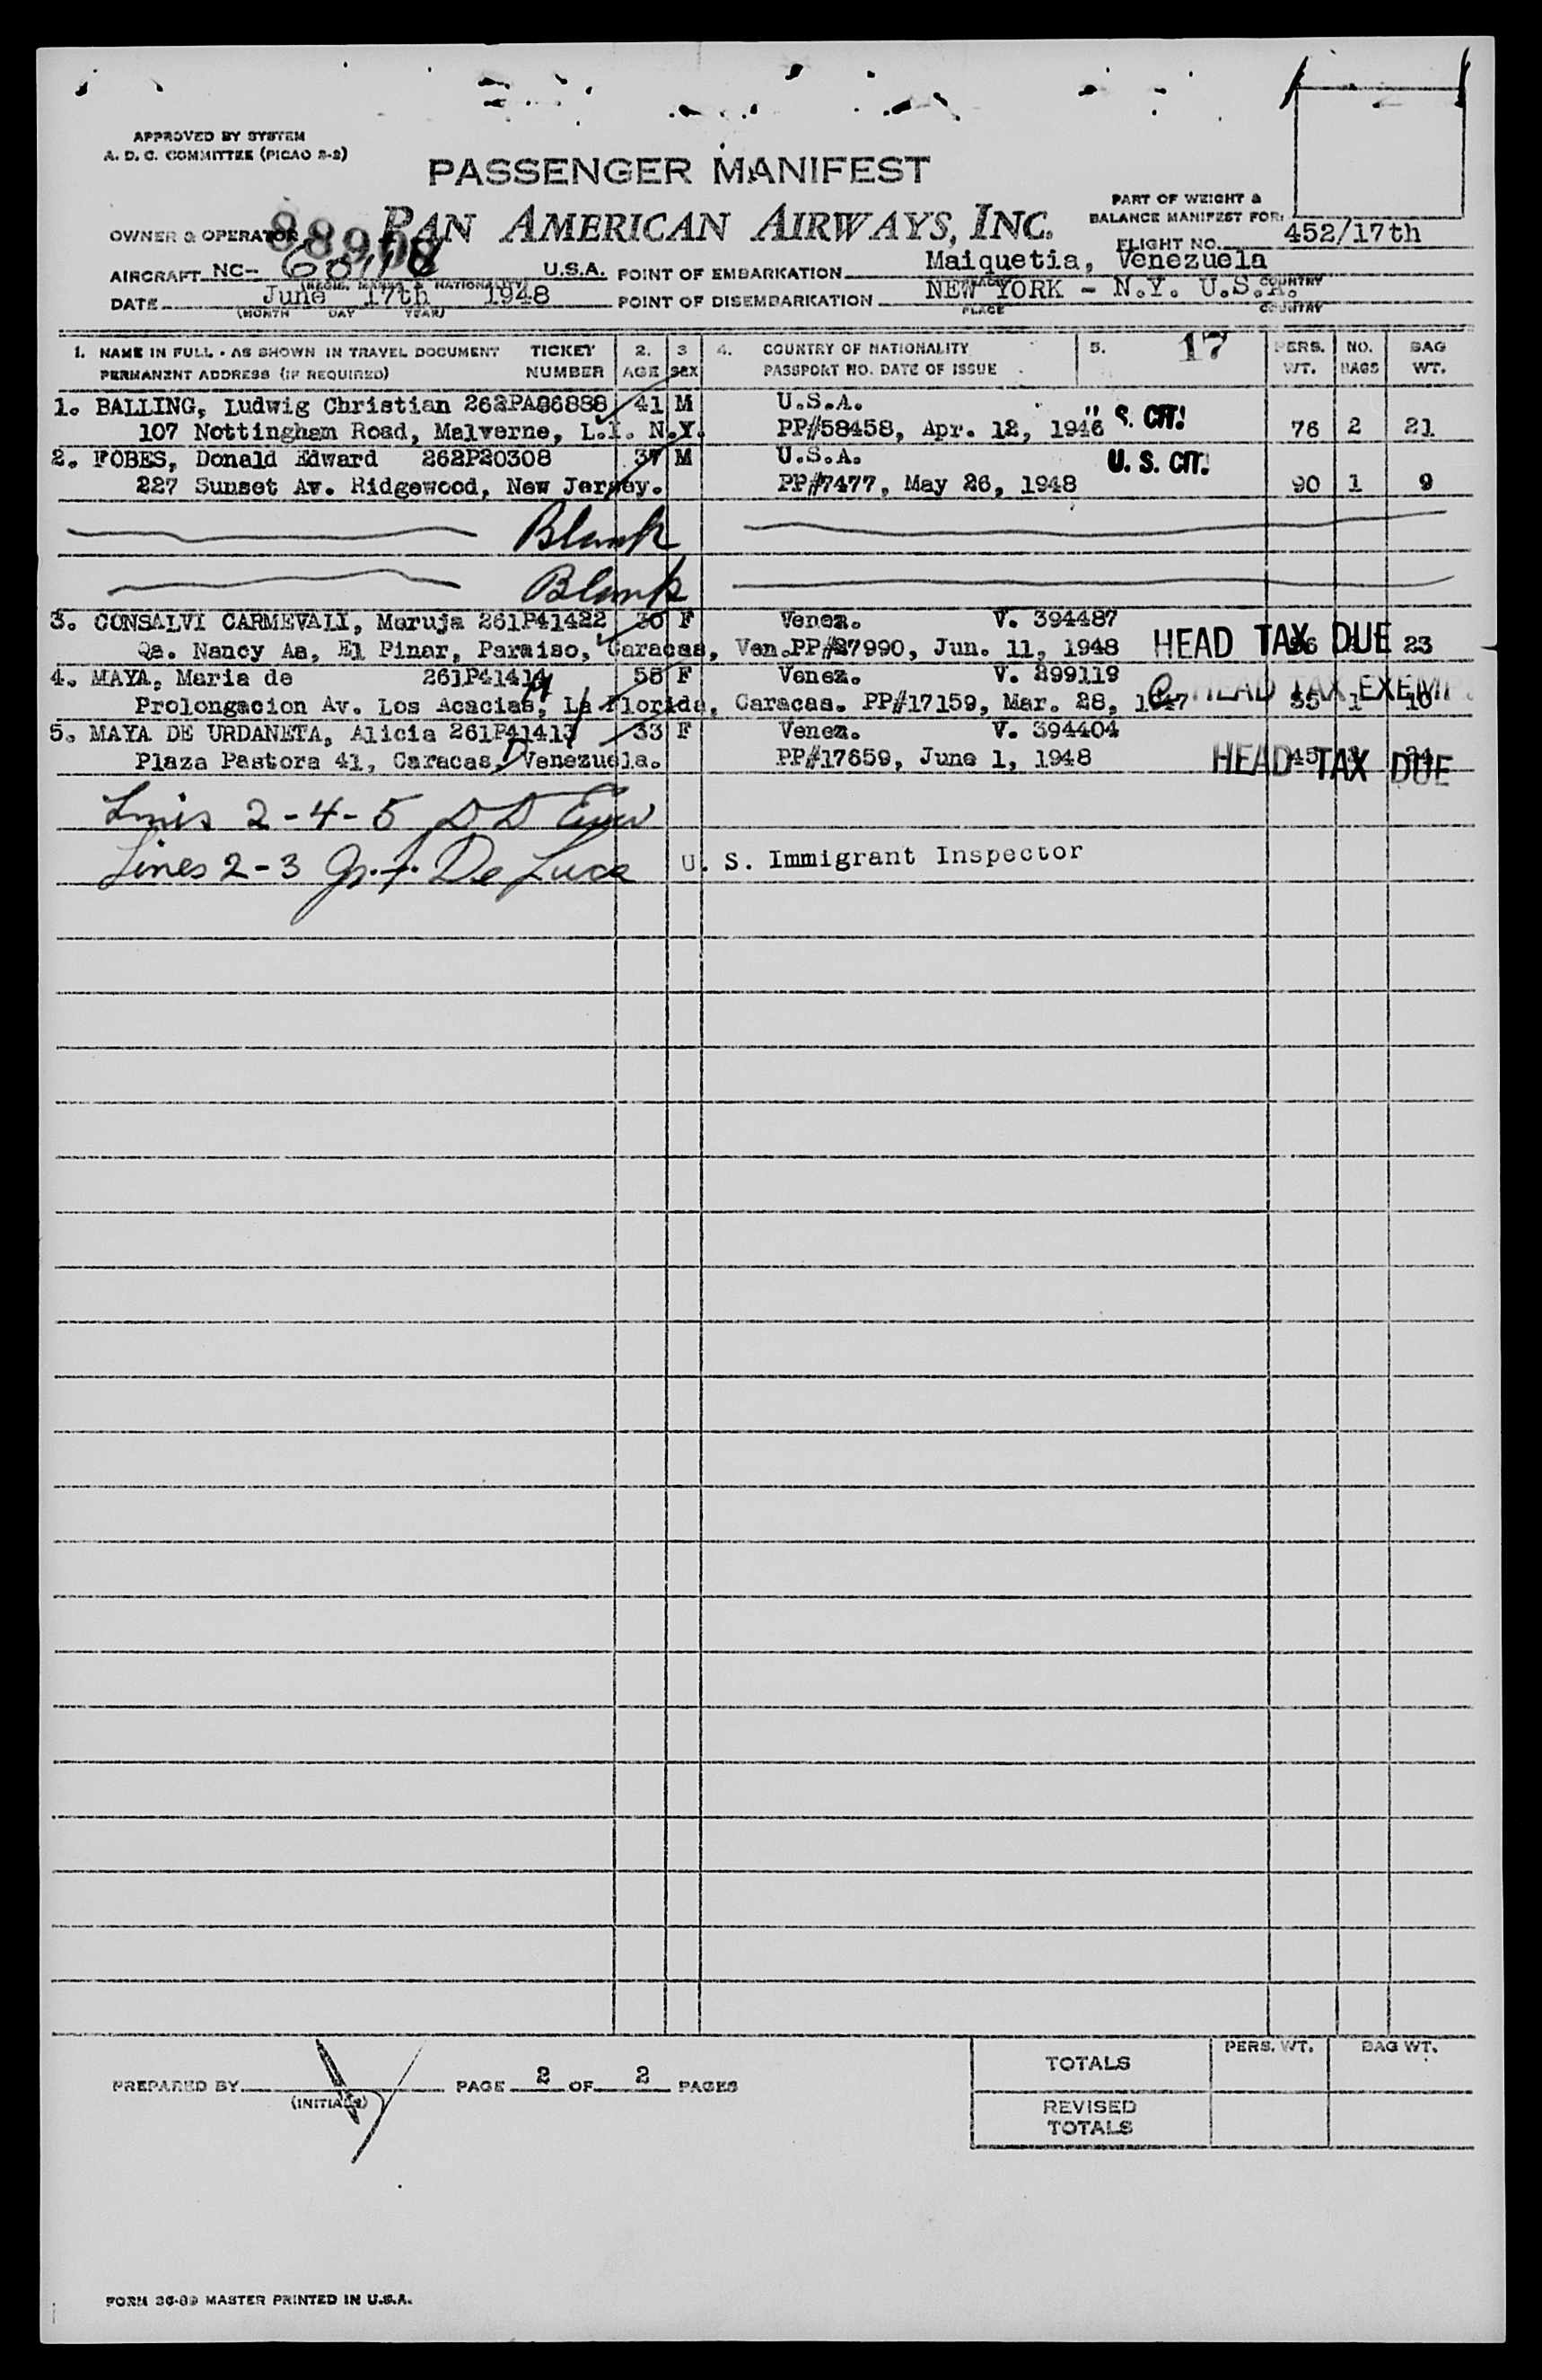 APPROVED BY SYSTEM
A. D. C. COMMITTEE (PICAO 2-2)
PASSENGER MANIFEST
PAN AMERICAN AIRWAYS, INC.
OWNER & OPERATOR
PART OF WEIGHT &
BALANCE MANIFEST FOR:
FLIGHT NO. 452/17th
AIRCRAFT NC- U.S.A. POINT OF EMBARKATION Maiquetia, Venezuela
(REGIS. MARKS & NATIONALITY) PLACE COUNTRY
DATE June 17th 1948 POINT OF DISEMBARKATION NEW YORK - N.Y. U.S.A.
(MONTH DAY YEAR) PLACE COUNTRY
1. NAME IN FULL - AS SHOWN IN TRAVEL DOCUMENT TICKET 2. 3 4. COUNTRY OF NATIONALITY 5. 17 PERS. NO. BAG
PERMANENT ADDRESS (IF REQUIRED) NUMBER AGE SEX PASSPORT NO. DATE OF ISSUE WT. BAGS WT.
1. BALLING, Ludwig Christian 262PA86888 41 M U.S.A.
107 Nottingham Road, Malverne, L.I. N.Y. PP#58458, Apr. 12, 1946 S. CIT. 76 2 21
2. FOBES, Donald Edward 262P20308 37 M U.S.A. U. S. CIT.
227 Sunset Av. Ridgewood, New Jersey. PP#7477, May 26, 1948 90 1 9
Blank
Blank
3. CONSALVI CARMEVALI, Maruja 261P41422 30 F Venez. V. 394487
Qa. Nancy Aa, El Pinar, Paraiso, Caracas, Ven. PP#27990, Jun. 11, 1948 HEAD TAX DUE 23
4. MAYA, Maria de 261P41414 58 F Venez. V. 299119
Prolongacion Av. Los Acacias, La Florida, Caracas. PP#17159, Mar. 28, 1947 HEAD TAX EXEMPT 55 1 10
5. MAYA DE URDANETA, Alicia 261P41413 33 F Venez. V. 394404
Plaza Pastora 41, Caracas, Venezuela. PP#17659, June 1, 1948 HEAD TAX DUE 45
Lines 2-4-5
Lines 2-3 De Luca U. S. Immigrant Inspector
TOTALS PERS. WT. BAG WT.
PREPARED BY PAGE 2 OF 2 PAGES
(INITIALS)
REVISED
TOTALS
FORM 36-89 MASTER PRINTED IN U.S.A.